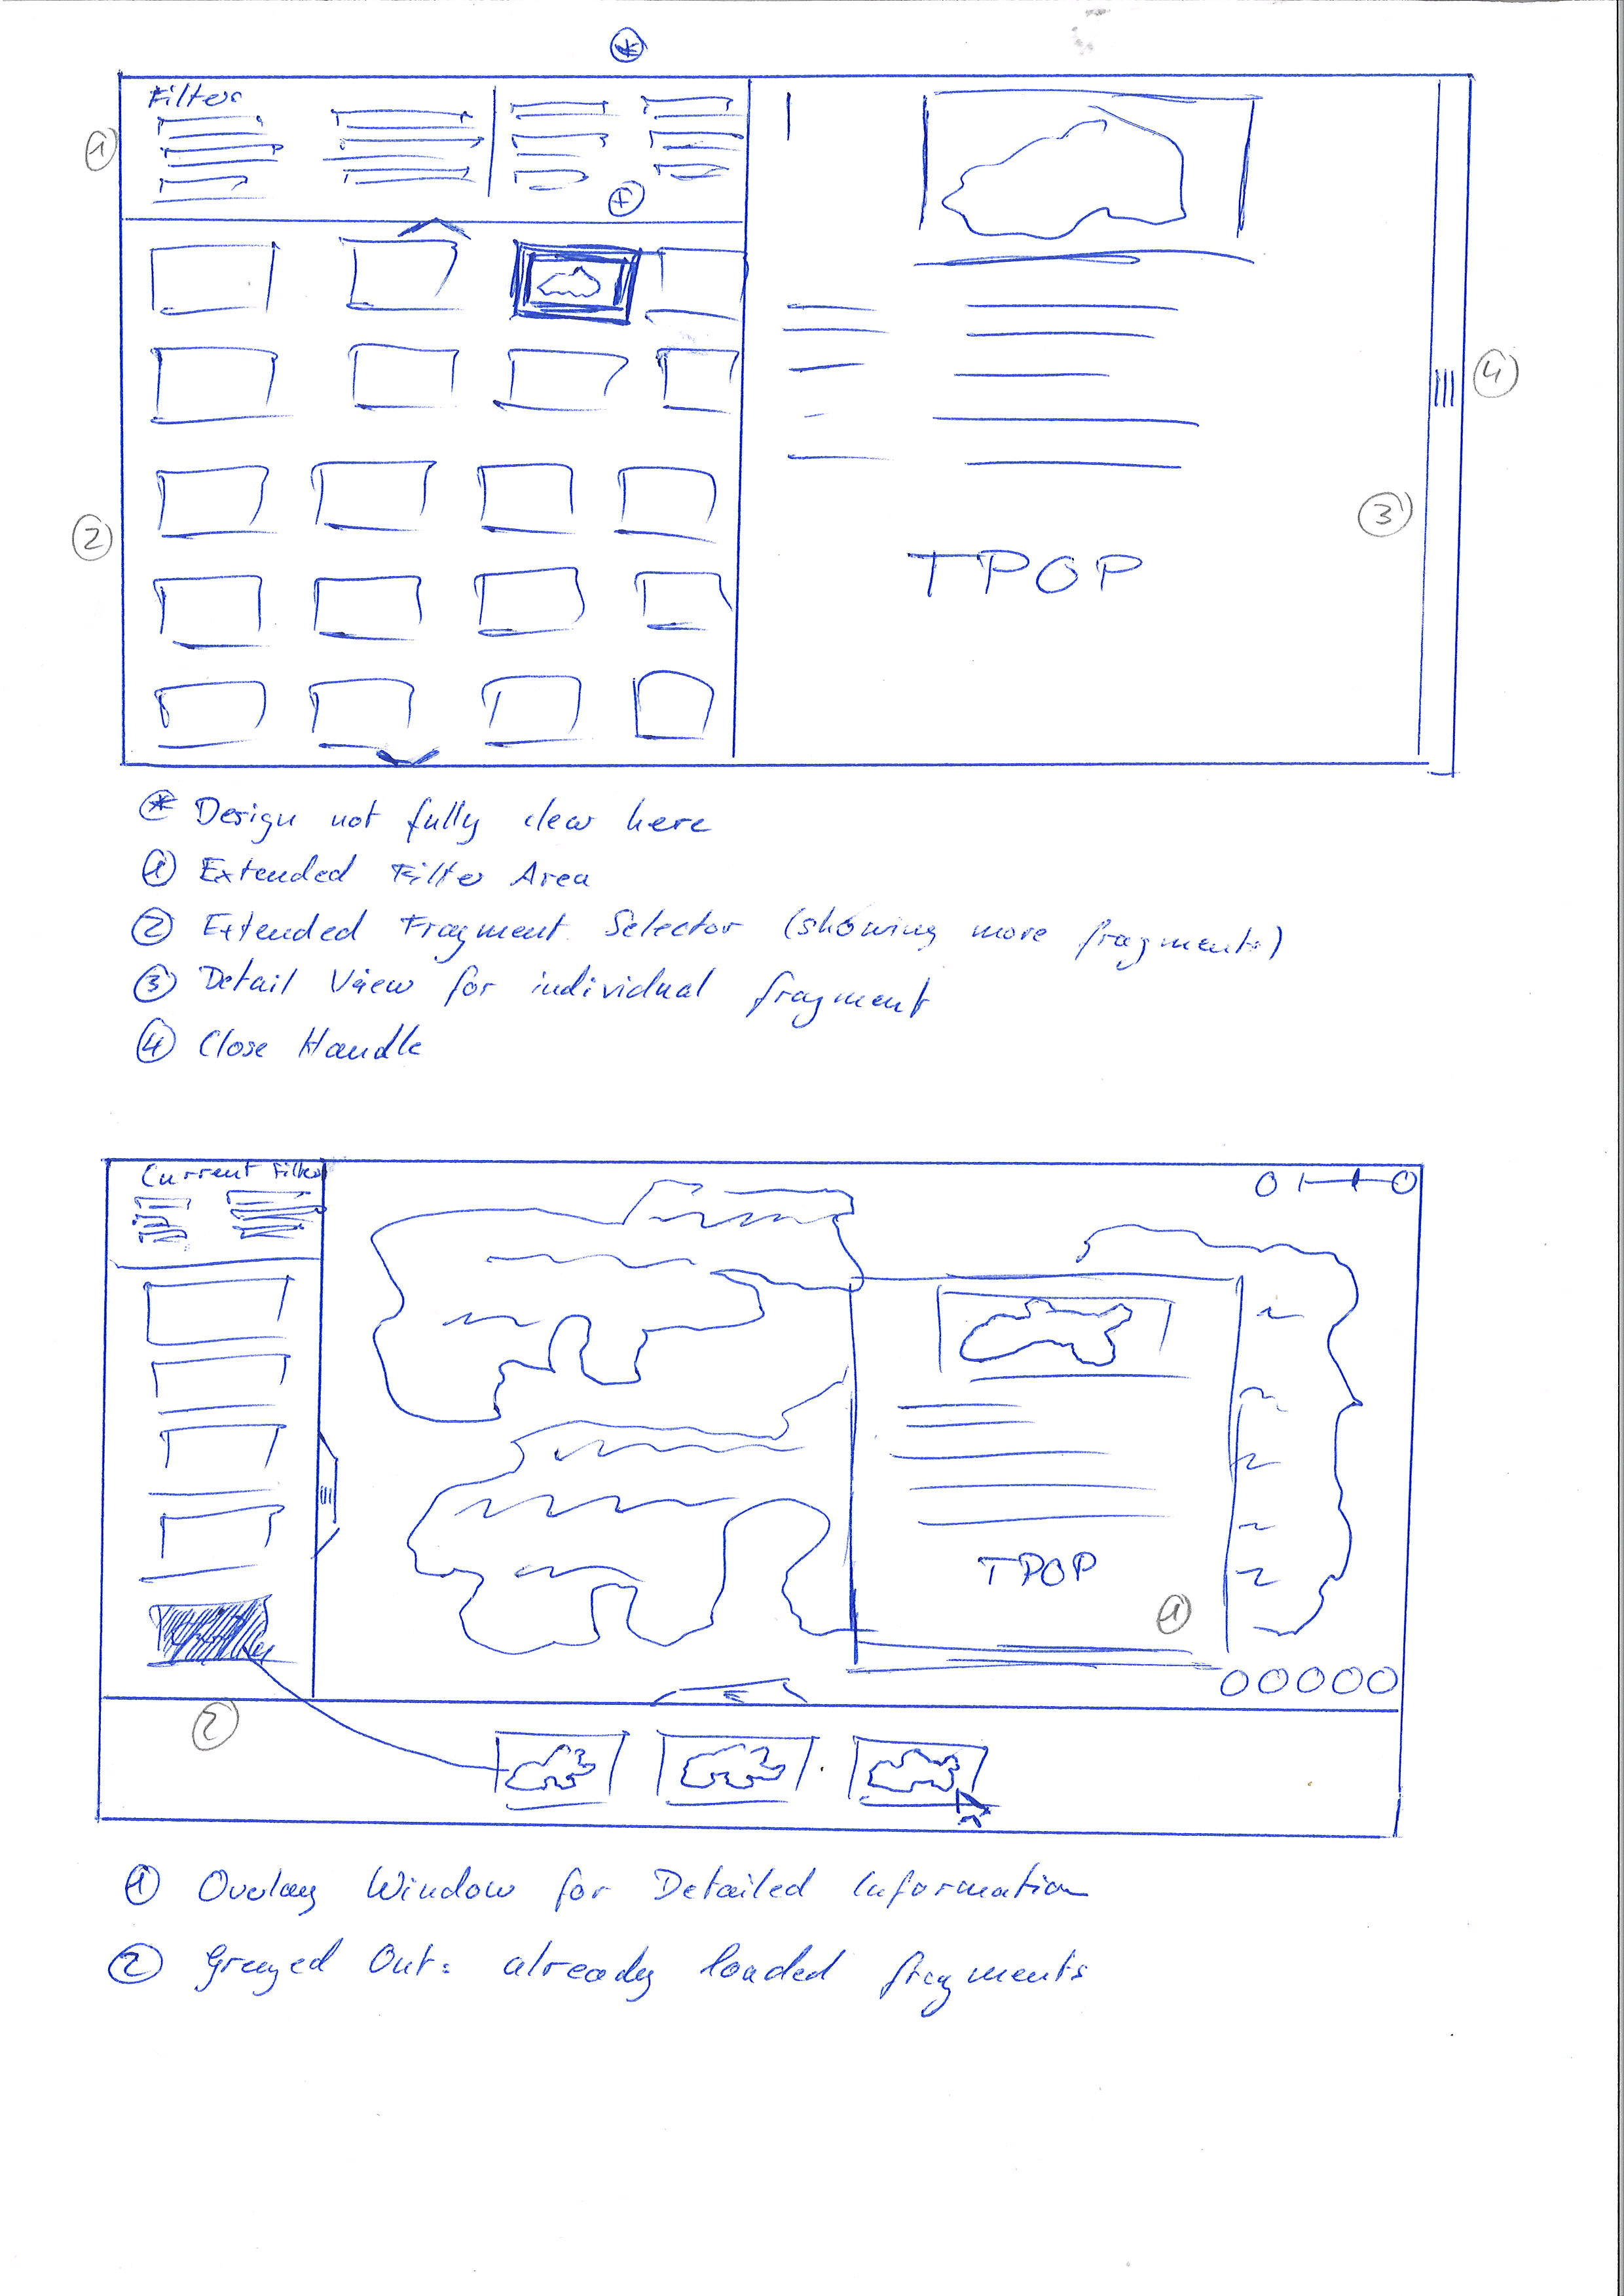 *
Filter
1
+
4
3
2
TPOP
* Design not fully clear here
1 Extended Filter Area
2 Extended Fragment Selector (showing more fragments)
3 Detail View for individual fragment
4 Close Handle
Current Filter
TPOP
1
2
1 Overlay Window for Detailed Information
2 Greyed Out: already loaded fragments